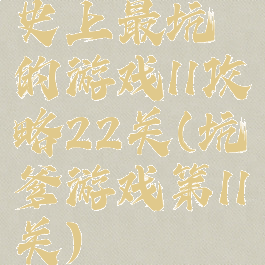 史上最坑
的游戏11攻
略22关(坑
爹游戏第11
关)